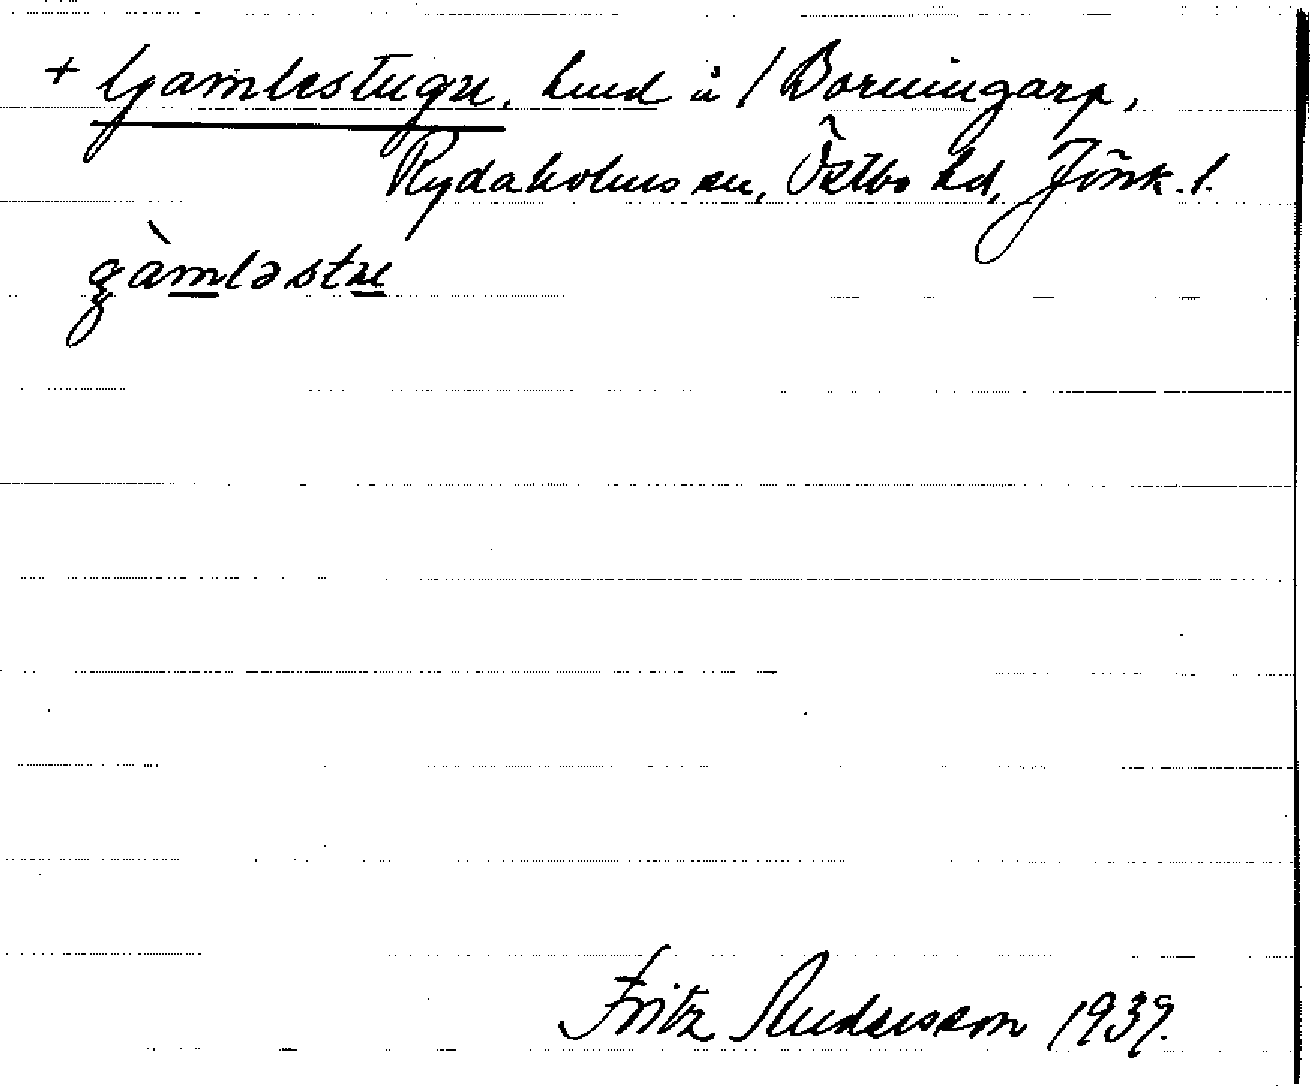 + Gamlestugu, lund å / Borningarp,
Rydaholms sn, Östbo hd, Jönk. l.
gàmləstu
Fritz Andersson 1939.